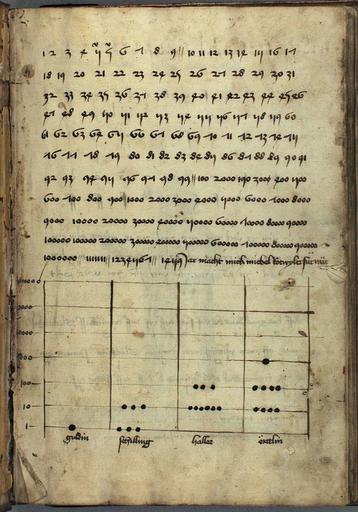 1 2 3 4 5 5 6 7 8 9 10 11 12 13 14 15 16 17
18 19 20 21 22 23 24 25 26 27 28 29 30 31
32 33 34 35 36 37 38 39 40 41 42 43 44 45 46
47 48 49 50 51 52 53 54 55 56 57 58 59 60
61 62 63 64 65 66 67 68 69 70 71 72 73 74 75
76 77 78 79 80 81 82 83 84 85 86 87 88 89 90 91
92 93 94 95 96 97 98 99 100
600 700 800 900 1000 2000 3000 4000 5000 6000 7000 8000
9000 10000 20000 30000 40000 50000 60000 70000 80000 90000
100000 200000 300000 400000 500000 600000 700000 800000 900000
1000000 Jar macht mich michel
100
10
1
guldin schilling haller örtlin